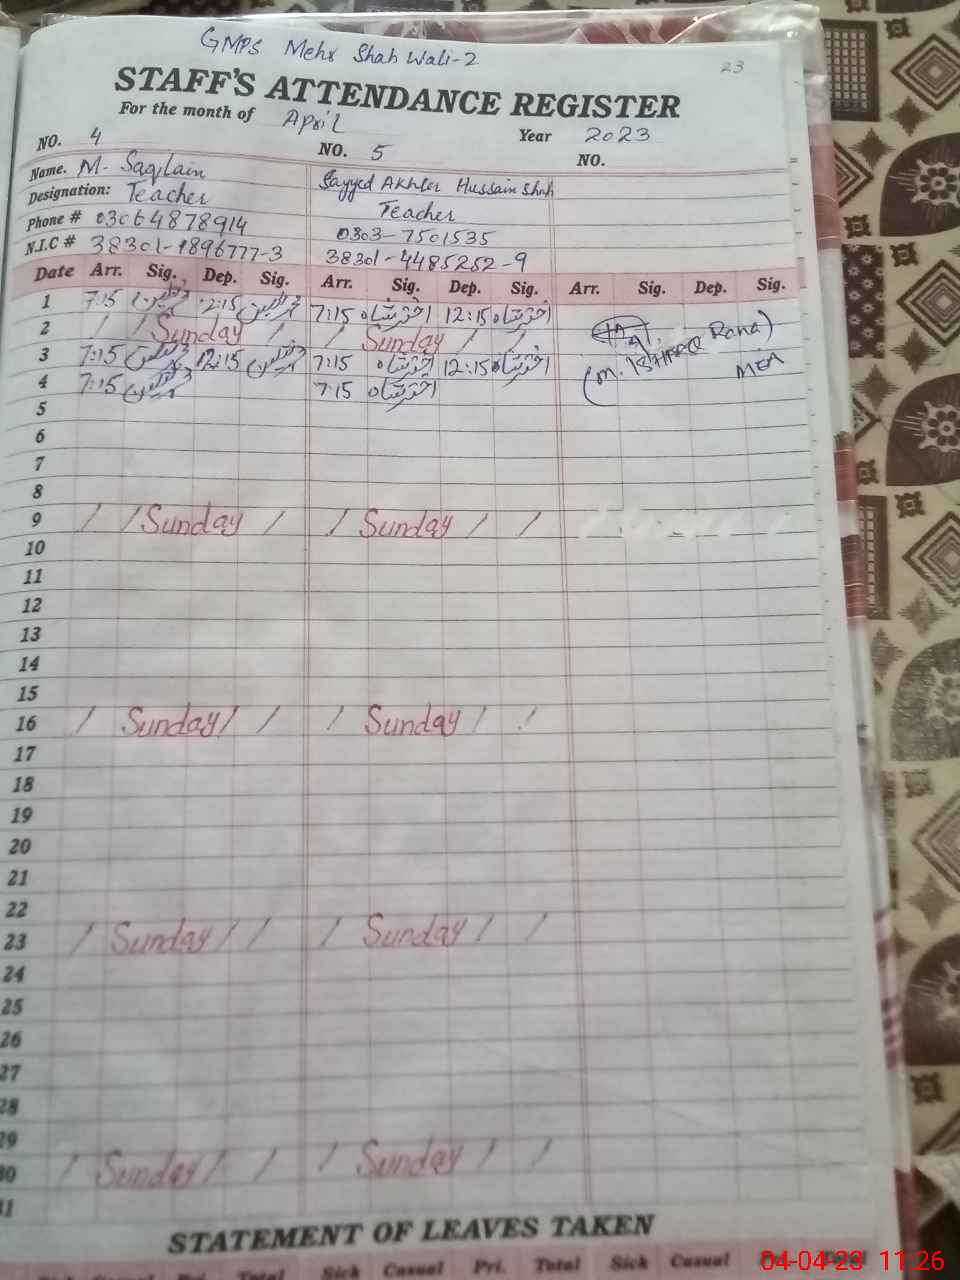 GMPS Mehr Shah Wali-2
23
STAFF'S ATTENDANCE REGISTER
For the month of April Year 2023
NO. 4 NO. 5 NO.
Name. M. Saqlain Sayyed Akhter Hussain Shah
Designation: Teacher Teacher
Phone # 03064878914 0303-7501535
N.I.C # 38301-1896777-3 38301-4485252-9
Date Arr. Sig. Dep. Sig. Arr. Sig. Dep. Sig. Arr. Sig. Dep. Sig.
1 7:15 ثقلین 12:15 ثقلین 7:15 اختر شاہ 12:15 اختر شاہ
2 / / Sunday / / Sunday / /
3 7:15 ثقلین 12:15 ثقلین 7:15 اختر شاہ 12:15 اختر شاہ
(M. ISHFAQ Rana)
MEA
4 7:15 ثقلین 7:15 اختر شاہ
5
6
7
8
9 / / Sunday / / Sunday / /
10
11
12
13
14
15
16 / Sunday / / / Sunday / /
17
18
19
20
21
22
23 / Sunday / / / Sunday / /
24
25
26
27
28
29
30 / Sunday / / / Sunday / /
31
STATEMENT OF LEAVES TAKEN
Sick Casual Pri. Total Sick Casual Pri. Total Sick Casual
04-04-23 11:26